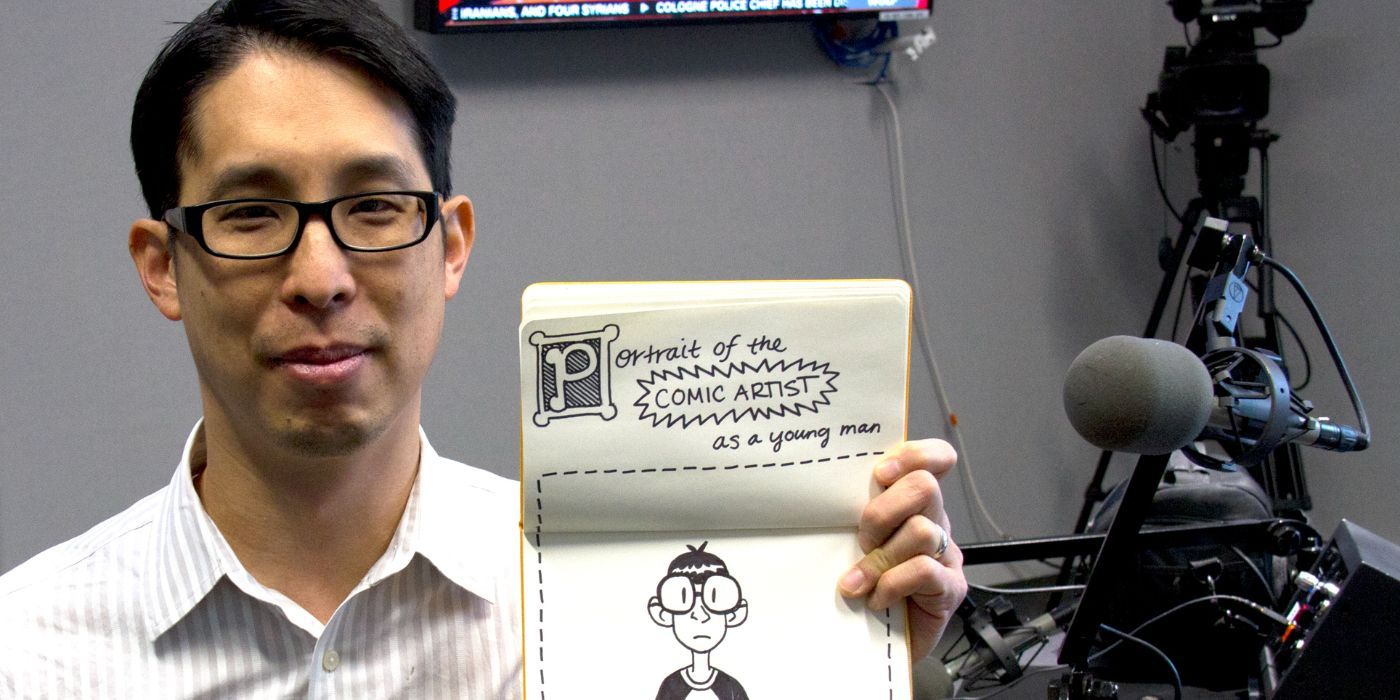 IRANIANS, AND FOUR SYRIANS ▶ COLOGNE POLICE CHIEF HAS BEEN
Portrait of the
COMIC ARTIST
as a young man